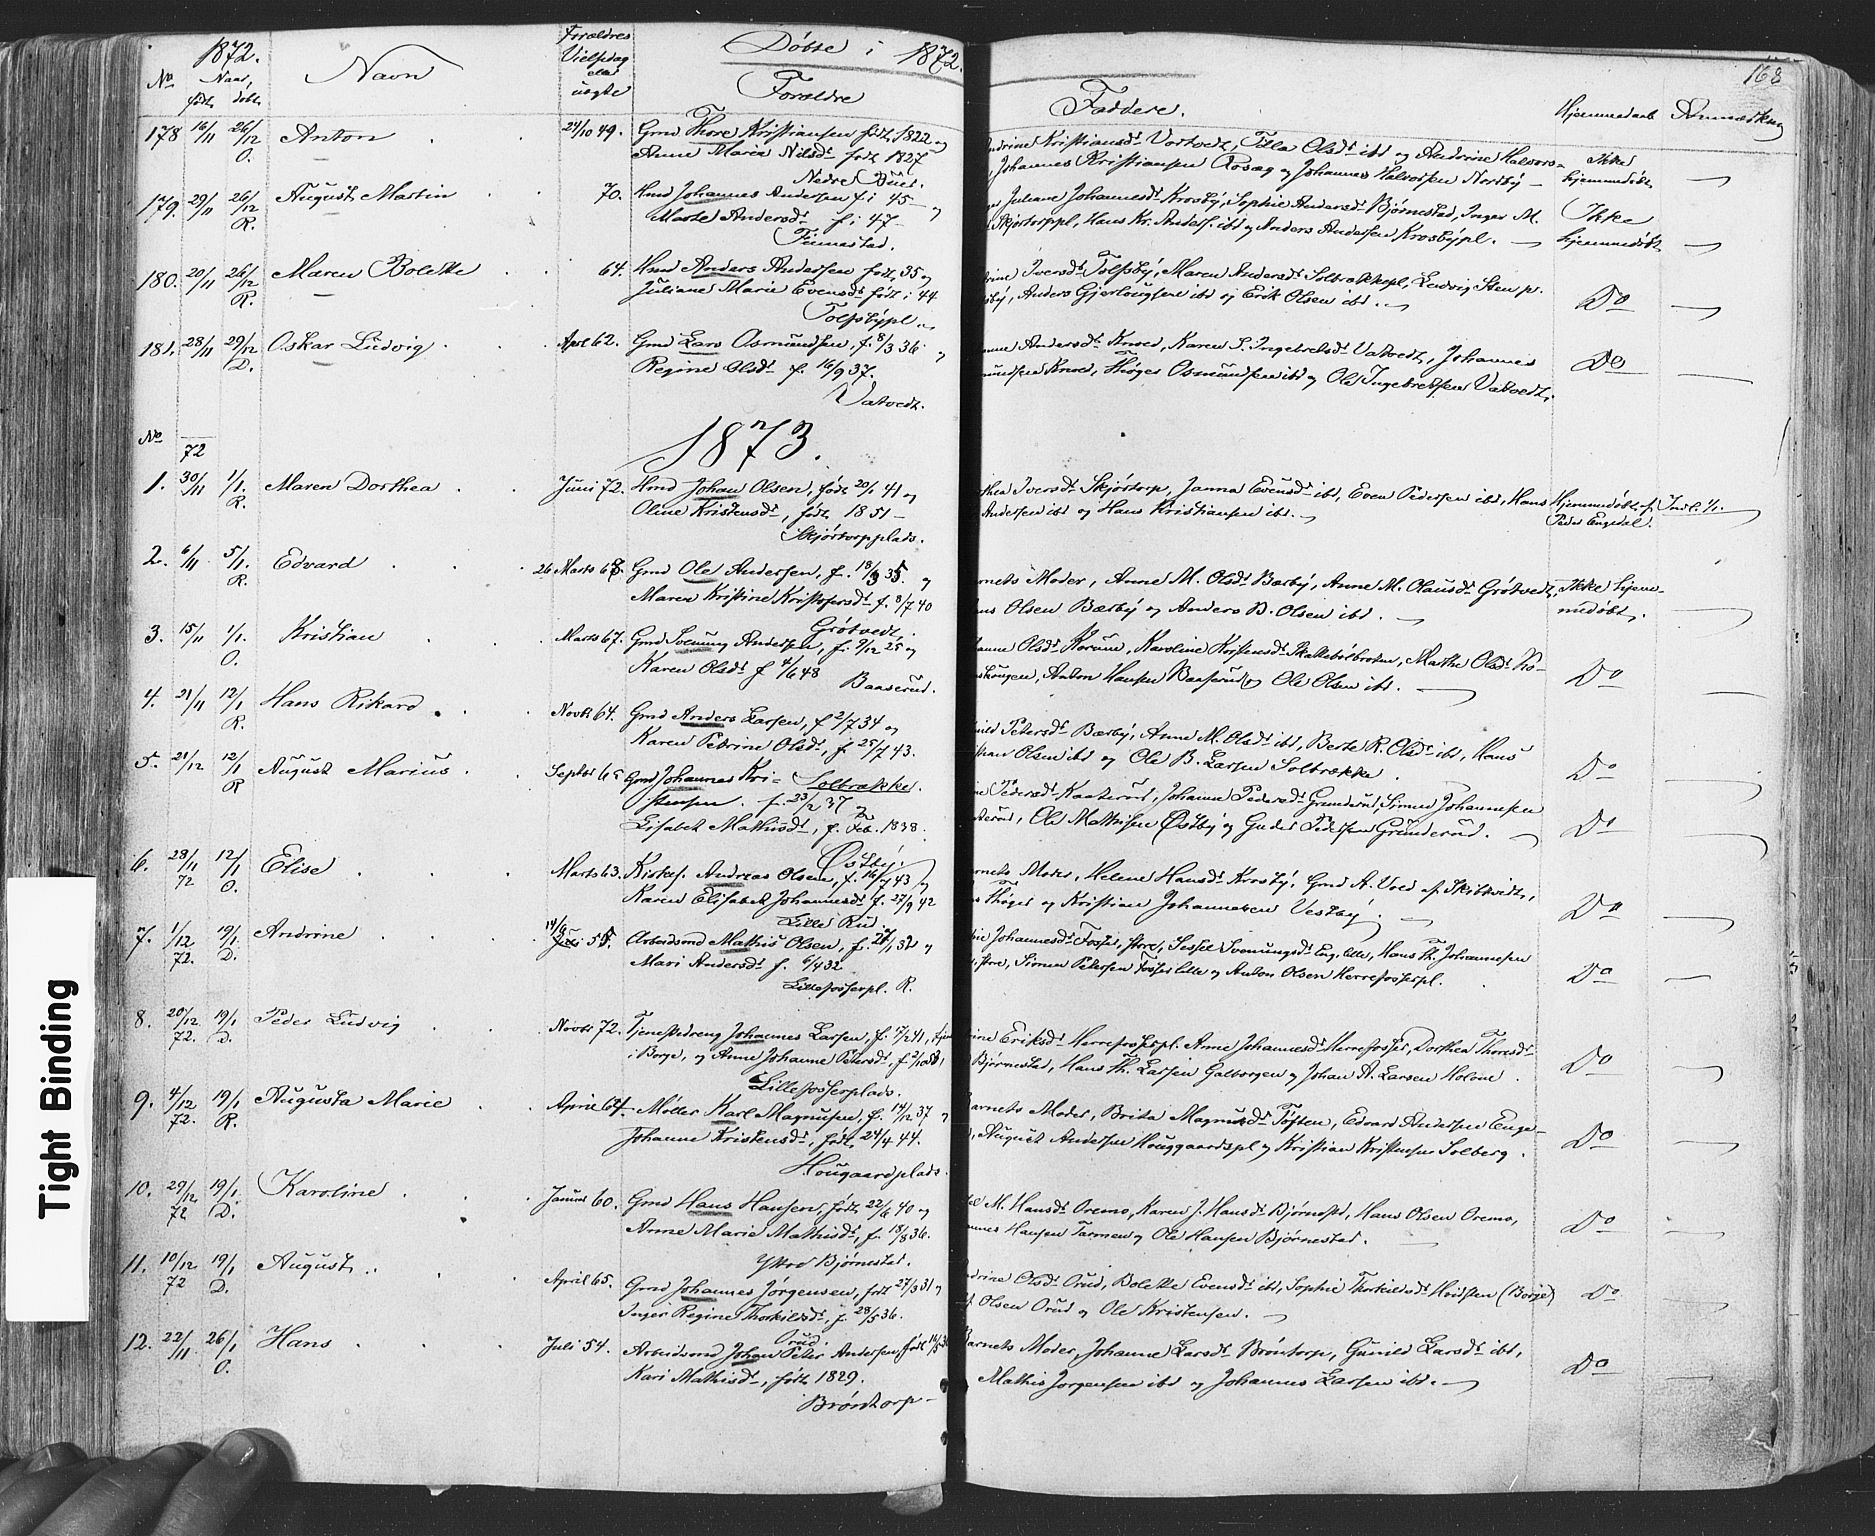 1872.
Døbte i 1872.
168
No
Naar
født
døbt
Navn
Forældres Vielsdag eller uægte
Forældre
Faddere.
Hjemmedøbt
Anmærkning
178 16/11 26/12 O. Anton 24/10 49. Gmd Thore Kristiansen født 1822 og
Anne Maria Nilsdr født 1827
Nedre Buer.
Kristiansdr Vortvedt, Tilla Olsdr ibd og Andrine Halvors-
Johannes Kristiansen Aasæg og Johannes Halvorsen Norby —
Ikke hjemmedøbt —
179. 29/11 26/12 R. August Martin 70. Hmd Johannes Andersen f. i 45 — og
Marte Andersdr f. i 47 —
Finnestad.
Juliane Johannesdr Krosby, Sophie Andersdr Bjørnestad, Inger M.
Skjørtorppl, Hans Kr. Anders. ibd og Anders Andersen Krosbypl. —
Ikke hjemmedøbt —
180. 20/11 26/12 R. Maren Bolette 64. Hmd Anders Andersen født 35 og
Juliane Marie Evensdr født i 44
Tolfsbypl —
Iversdr Tolfsby, Maren Andersdr Solbrækkepl, Ludvig Stenp.
Anders Gjerlougsen ibd og Erik Olsen ibd. —
Do —
181. 28/11 29/12 D. Oskar Ludvig Apr. 62. Gmd Lars Osmundsen, f. 8/3 36 og
Regine Olsdr f. 16/9 37.
Vatvedt.
Andersdr Knoed, Karen S. Ingebretsdr Vatvedt, Johannes
Knoed, Thøger Osmundsen ibd og Ole Ingebretsen Vatvedt.
Do —
1873.
No
72
1. 30/11 1/1. R. Maren Dorthea Juni 72. Hmd Johan Olsen, født 20/1 41 og
Oline Kristensdr, født 1851 —
Skjørtorpplads.
Iversdr Skjørtorp, Janna Evensdr ibd, Even Pedersen ibd, Hans
Andersen ibd og Hans Kristiansen ibd. —
Hjemmedøbt af Peder Engedal. Indl. 1/1. —
2. 6/11 5/1. R. Edvard 26 Marts 68. Gmd Ole Andersen, f. 18/3 35. og
Maren Kristine Kristofersdr f. 8/7 40
Grøtvedt.
Moder, Anne M. Olsdr Bærby, Anne M. Olausdr Grøtvedt,
Olsen Bærby og Anders B. Olsen ibd. —
Ikke hjemmedøbt. —
3. 15/11 1/1. O. Kristian Marts 67. Gmd Svenung Andersen, f. 9/12 25 og
Karen Olsdr f 4/6 48
Baaserud.
Olsdr Korum, Karoline Kristensdr Skattebølbroten, Marthe Olsdr
Anton Hansen Baaserud og Ole Olsen ibd. —
Do —
4. 21/11 12/1 R. Hans Rikard. Novbr 64. Gmd Anders Larsen, f 2/7 34 og
Karen Petrine Olsdr, f. 25/7 43.
Solbrække.
Petersdr Bærby, Anne M. Olsdr ibd, Berte R. Olsdr ibd, Hans
Olsen ibd og Ole B. Larsen Solbrække.
Do —
5. 21/12 12/1 R August Marius. Septbr 65 Gmd Johannes Kri-
stensen. f. 23/2 37 og
Lisabet Mathisdr, f. Feb. 1838.
Østby.
Pedersdr Kaaterud, Johanne Pedersdr Grunderud, Simen Johannesen
Ole Mathisen Østby og Guder Pedersen Grunderud. —
Do —
6. 28/11 72 12/1 O. Elise Marts 63. Kirkes. Andreas Olsen, f. 16/7 43 og
Karen Elisabet Johannesdr f. 27/9 42
Lille Rud.
Moder, Helene Hansdr Krosby, Gmd A. Voed af Skibtvedt,
Thøger og Kristian Johannesen Vestby. —
Do —
7. 1/12 72. 19/1 D. Andrine 14/6 55. Arbeidsmd Mathis Olsen, f. 27/1 32 og
Mari Andersdr f. 6/4 32
Lillefosserpl. R.
Johannesdr Fosser, store, Sessel Svenungsdr Eng, lille, Hans Th. Johannesen
store, Simen Petersen Fosser lille og Anton Olsen Herrefosserpl.
Do —
8. 20/12 72. 19/1 D. Peder Ludvig Novbr 72. Tjenestedreng Johannes Larsen, f. 17/2 41,
i Borge, og Anne Johanne Petersdr,
Lillefosserplads.
Eriksdr Herrefosserpl. Anne Johannesdr Herrefosser, Dorthea Thoresdr
Bjørnestad, Hans Th. Larsen Galborgen og Johan A. Larsen Holom.
Do —
9. 4/12 72. 19/1 R. Augusta Marie April 64. Møller Karl Magnusen, f. 14/12 37 og
Johanne Kristensdr, født 24/4 44.
Hougaardplads.
Moder, Brita Magnusdr Toften, Edvard Andersen Enge-
August Andersen Houggaardspl og Kristian Kristensen Solberg.
Do —
10. 29/12 72 19/1 D. Karoline Januar 60. Gmd Hans Hansen, født 22/6 40 og
Anne Marie Mathisdr, f. 18/8 36.
Ytre Bjørnestad.
M. Hansdr Oremo, Karen J. Hansdr Bjørnestd, Hans Olsen Oremo,
Hansen Tarmen og Ole Hansen Bjørnestad. —
Do —
11. 10/12 72 19/1 D. August April 65. Gmd Johannes Jørgensen, født 27/3 31 og
Inger Regine Thorkildsdr, f. 28/5 36.
Orud.
Olsdr Orud, Bolette Evensdr ibd, Sophie Thorkildsdr Hvidsten (Borge)
Olsen Orud og Ole Kristensen. —
Do —
12. 22/11 26/1 O. Hans Juli 54. Arbeidsmd Johan Peter Andersen, født
Kari Mathisdr, født 1829.
Brøntorp —
Moder, Johanne Larsdr Brøntorp, Gunild Larsdr ibd,
Mathis Jørgensen ibd og Johannes Larsen ibd. —
Do —
Tight Binding